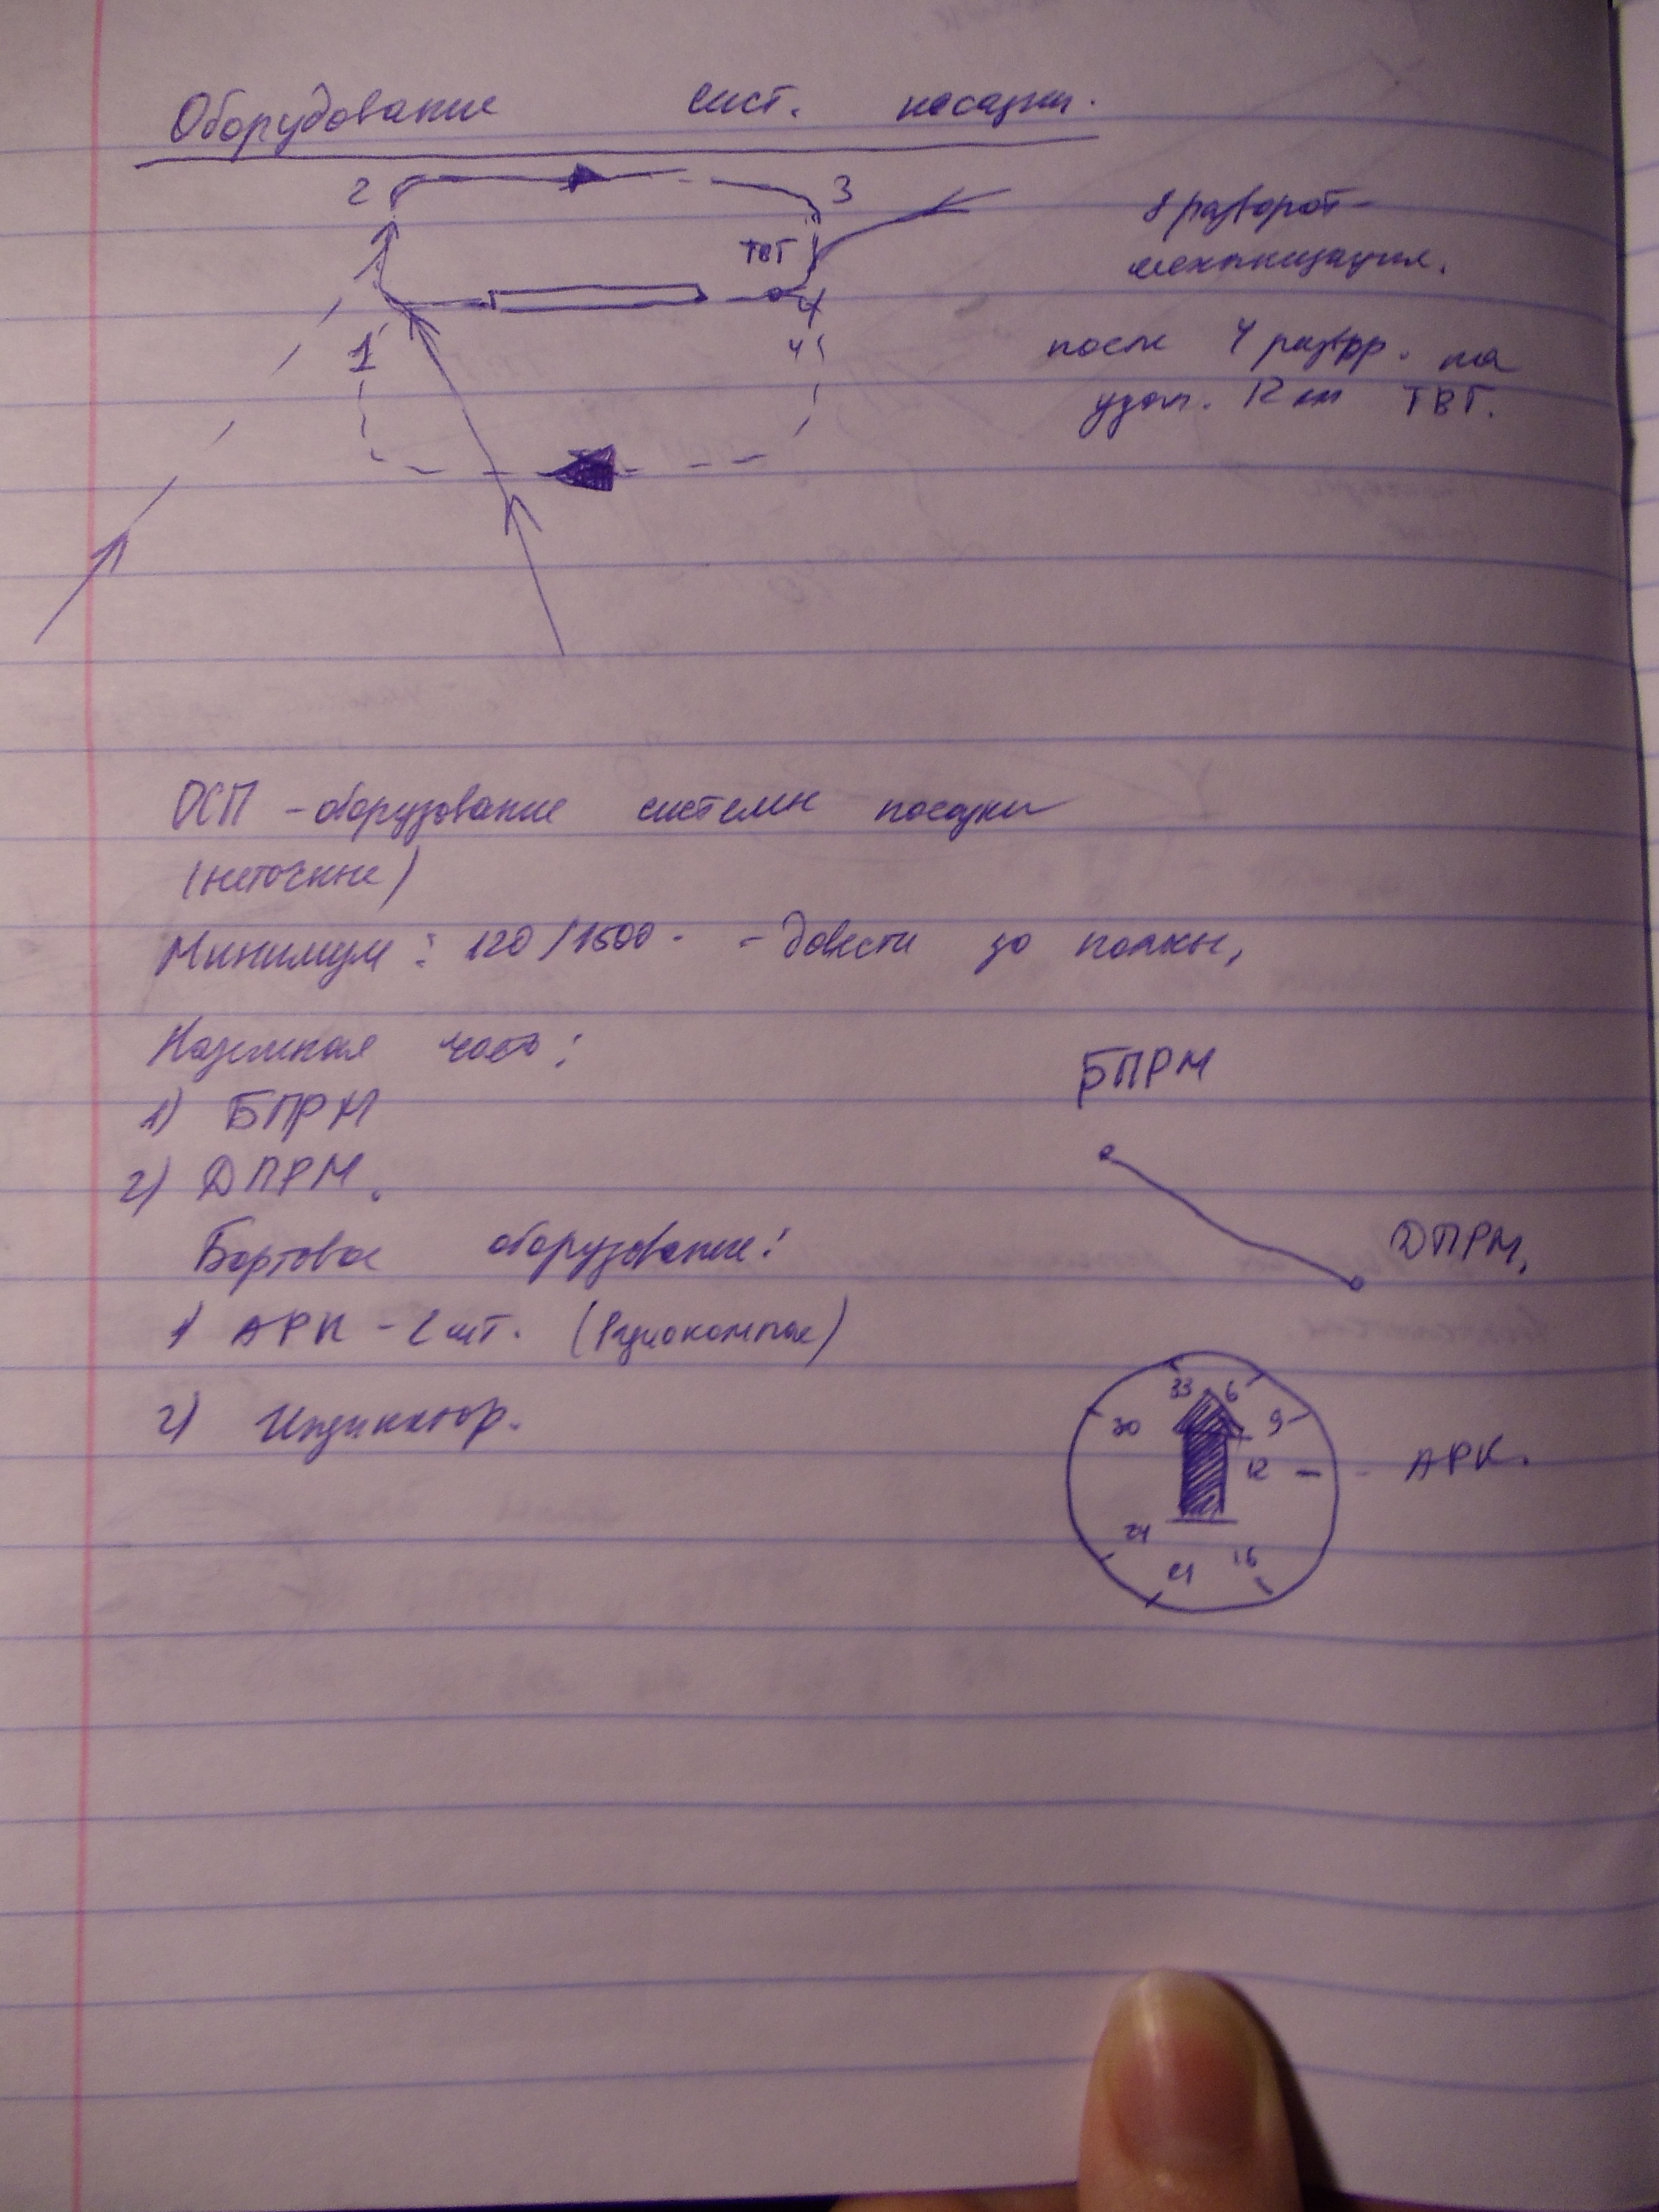 Оборудование сист. посадки.
2
3
ТВГ
4
1
4
8 разворот-
механизация.
после 4 развор. на
удал. 12 км ТВГ.
ОСП - оборудование системы посадки
(неточные)
Минимум: 120/1500. - довести до полосы,
Наземная часть:
1) БПРМ
2) ДПРМ.
БПРМ
ДПРМ.
Бортовое оборудование:
1) АРК - 2 шт. (Радиокомпас)
2) Индикатор.
33 6
30 9
12 - - АРК.
24
21 16